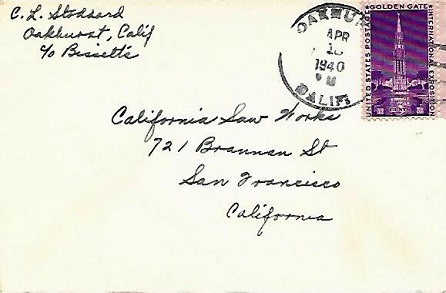 C. L. Stoddard
Oakhurst, Calif
c/o Bissett's
OAKHURST
APR
1940
CALIF.
UNITED STATES POSTAGE
GOLDEN GATE
INTERNATIONAL EXPOSITION
California Saw Works
721 Brannan St
San Francisco
California